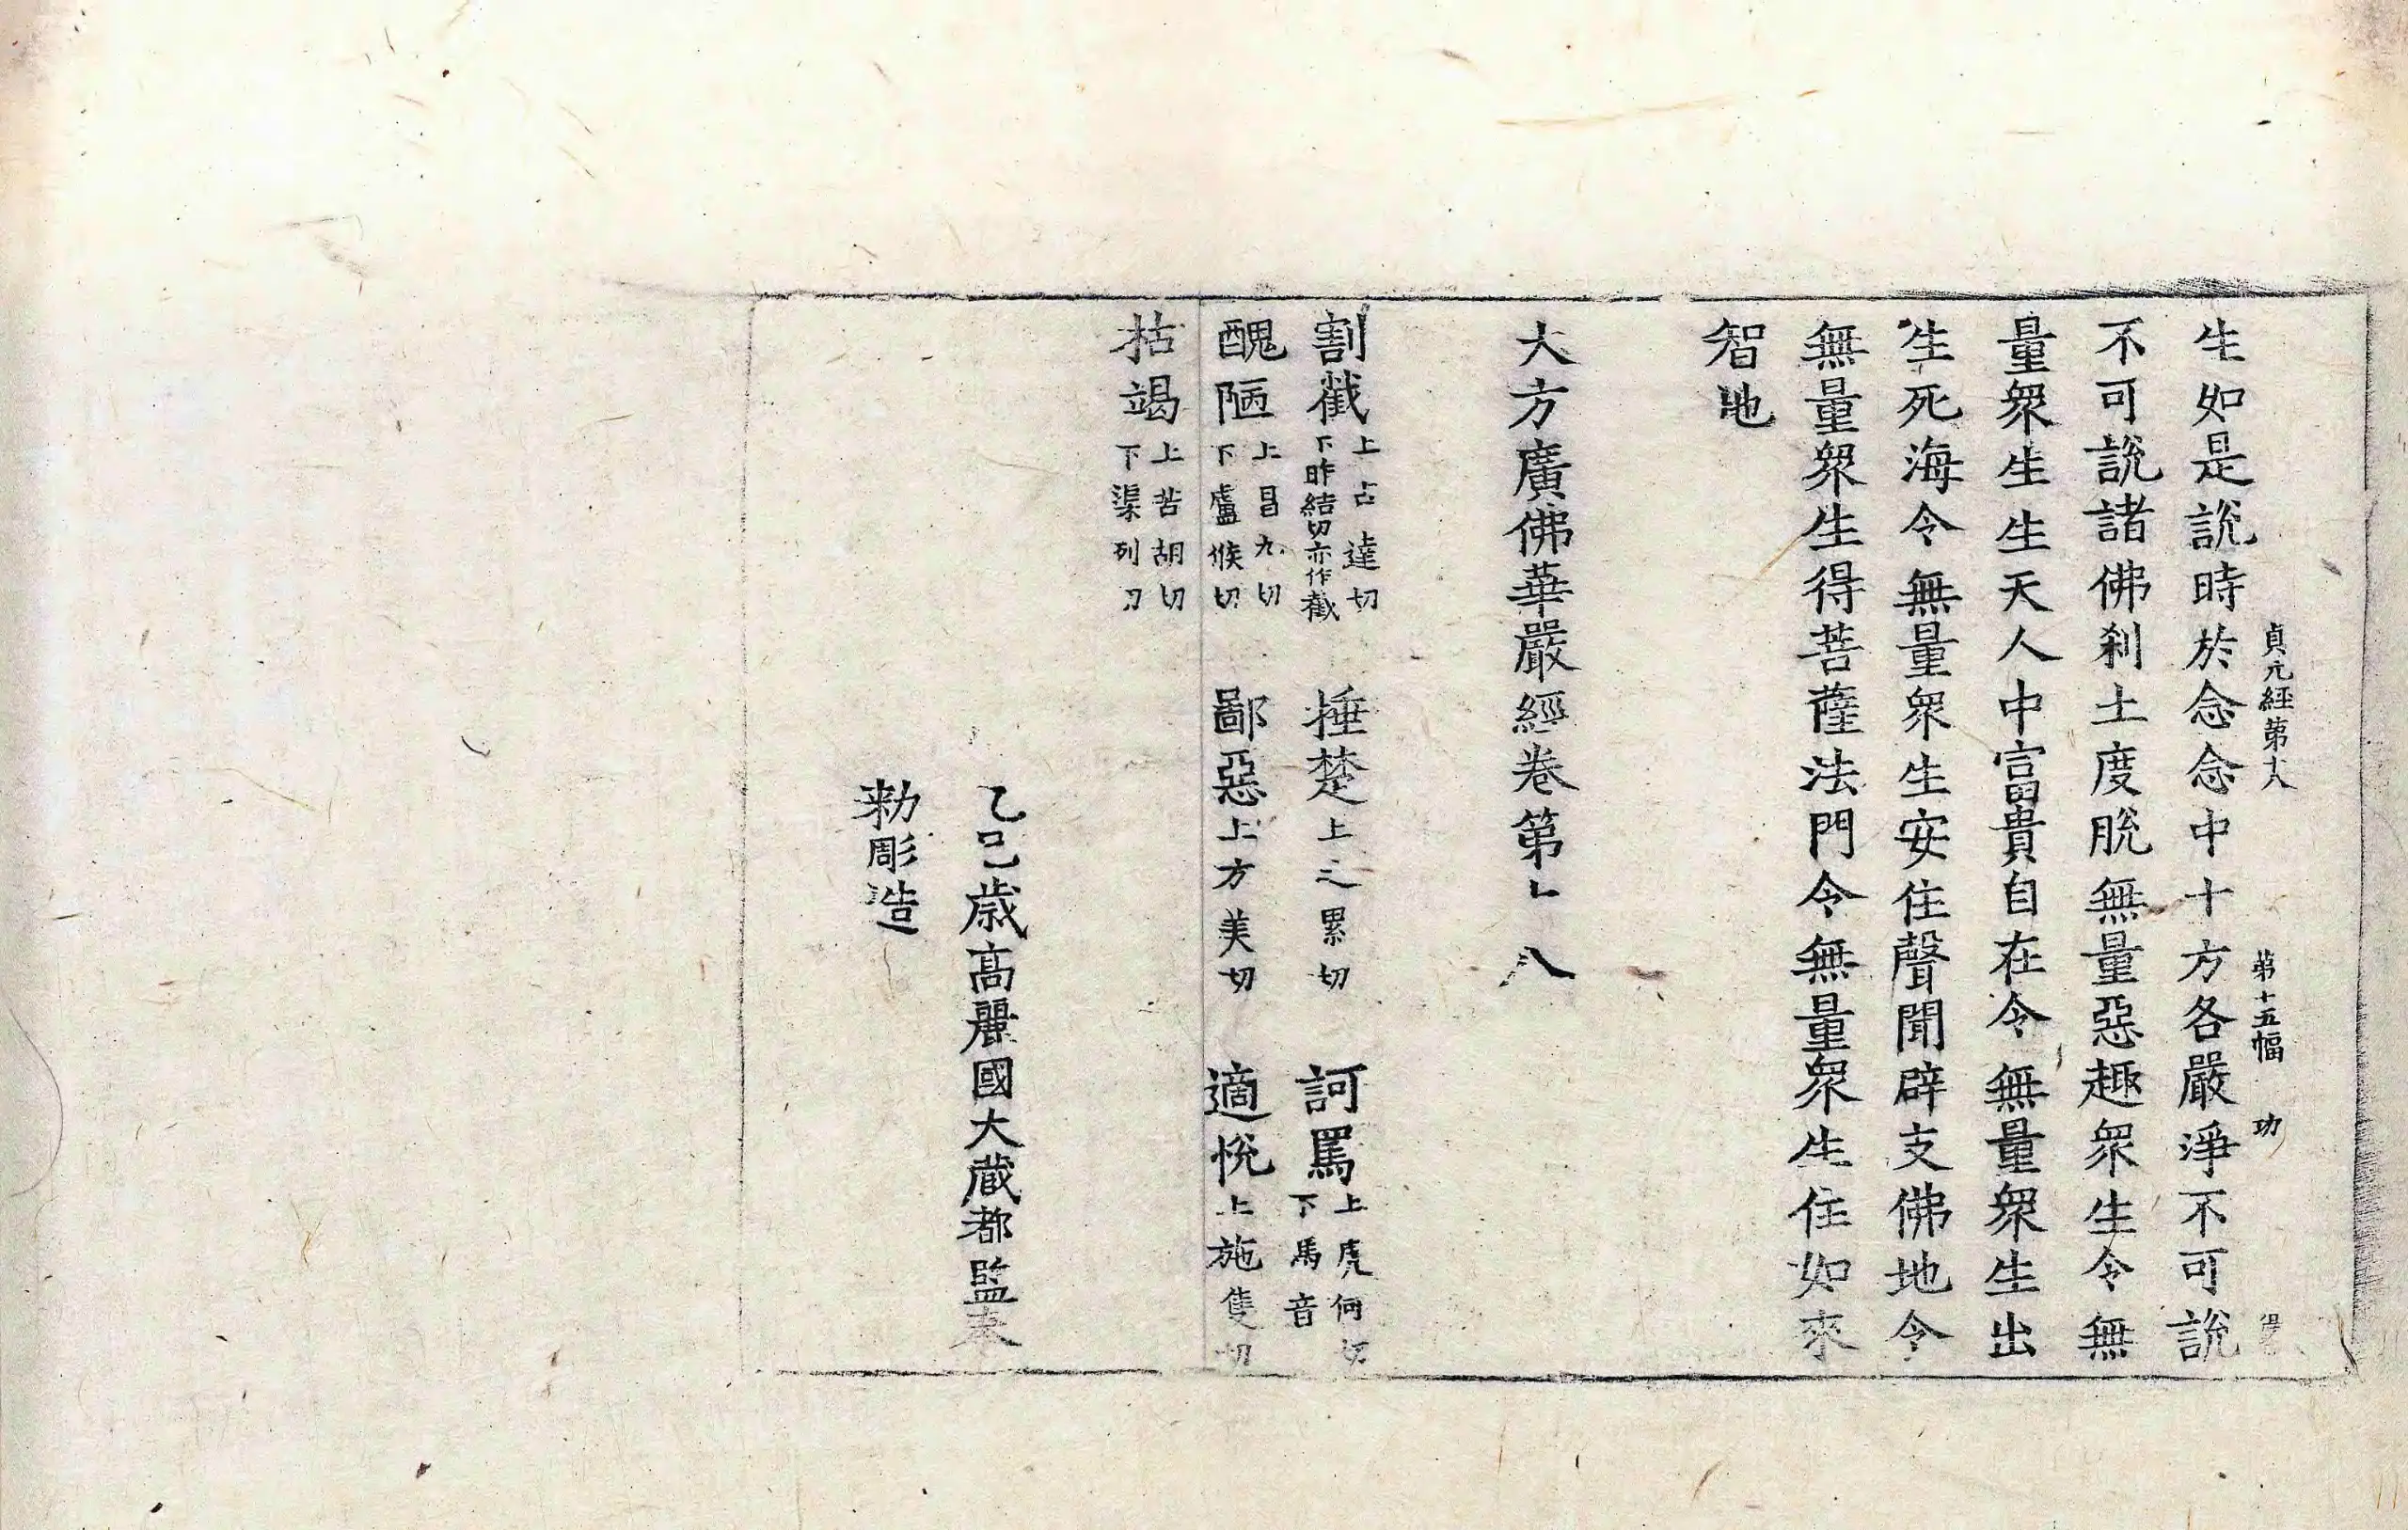 貞元經第十八 第十五幅 功
生如是說時於念念中十方各嚴淨不可說
不可說諸佛刹土度脫無量惡趣衆生令無
量衆生生天人中富貴自在令無量衆生出
生死海令無量衆生安住聲聞辟支佛地令
無量衆生得菩薩法門令無量衆生住如來
智地
大方廣佛華嚴經卷第十八
割截 上古達切 下昨結切亦作截 捶楚 上之累切 訶罵 上虎何切 下馬音
醜陋 上昌九切 下盧候切 鄙惡 上方美切 適悅 上施隻切
枯竭 上苦胡切 下渠列切
乙巳歲高麗國大藏都監奉
勑彫造